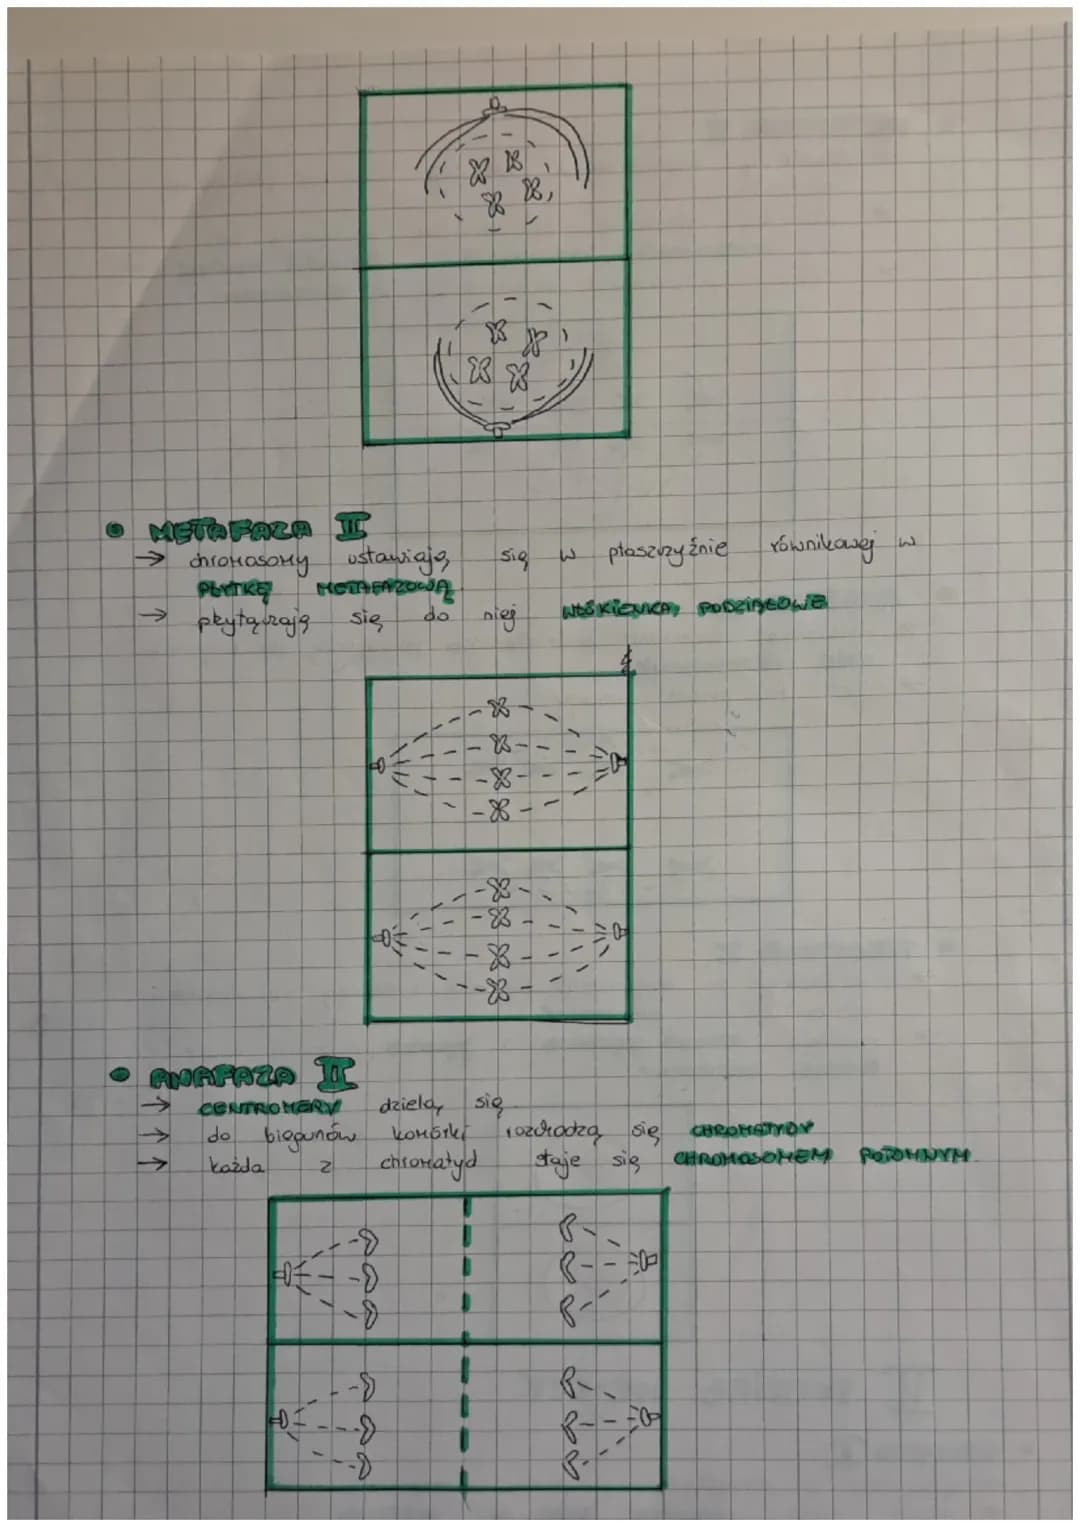 METAFAZA II
→ chromosomy ustawiają się w płaszczyźnie równikowej w
PŁYTKĘ METAFAZOWĄ
→ się do niej WŁÓKIENKA PODZIAŁOWE
ANAFAZA II
→ CENTROMERY dzielą się
→ do biegunów komórki rozchodzą się CHROMATYDY
→ każda z chromatyd staje się CHROMOSOMEM POTOMNYM